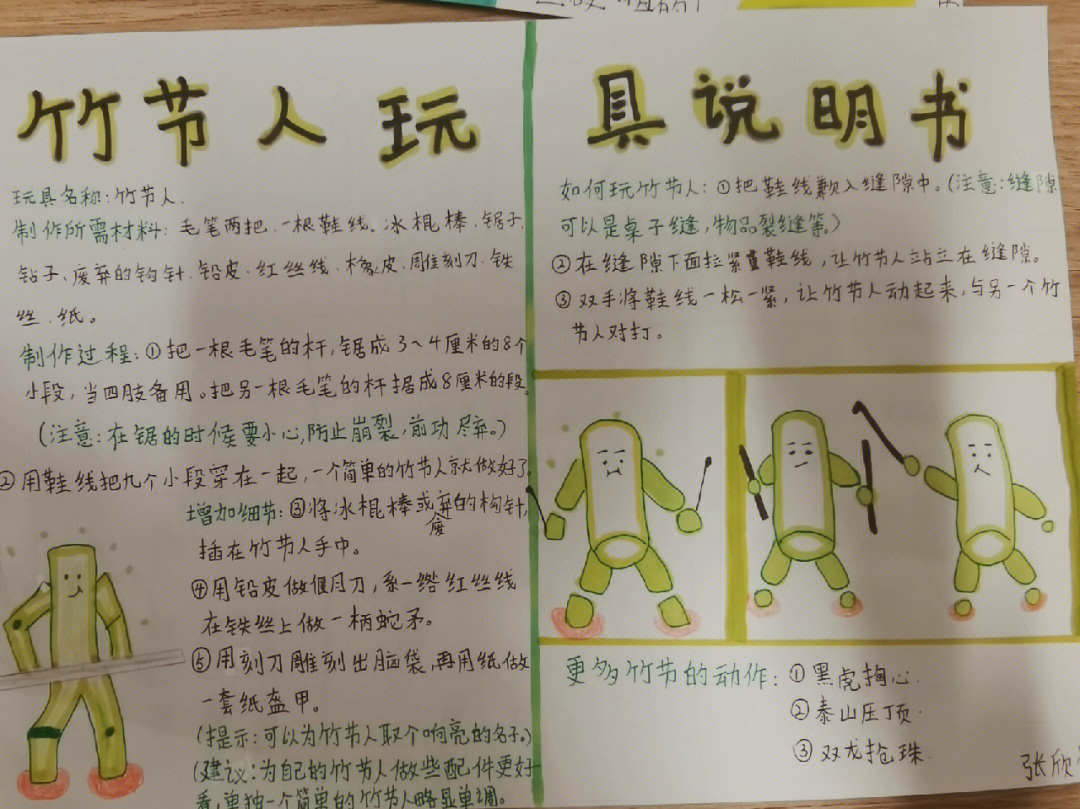 竹节人玩具说明书
玩具名称：竹节人．
制作所需材料：毛笔两把、一根鞋线、冰棍棒、锯子、
钻子、废弃的钩针、铅皮、红丝线、橡皮、雕刻刀、铁
丝、纸。
制作过程：①把一根毛笔的杆，锯成3~4厘米的8个
小段，当四肢备用。把另一根毛笔的杆据成8厘米的段
(注意：在锯的时候要小心，防止崩裂，前功尽弃。)
②用鞋线把九个小段穿在一起，一个简单的竹节人就做好了
增加细节：③将冰棍棒或废弃的构针，
插在竹节人手中。
④用铅皮做偃月刀，系一绺红丝线
在铁丝上做一柄蛇矛。
⑤用刻刀雕刻出脑袋，再用纸做
一套纸盔甲。
(提示：可以为竹节人取个响亮的名子。)
(建议：为自己的竹节人做些配件更好
看，单独一个简单的竹节人略显单调。
如何玩竹节人：①把鞋线嵌入缝隙中。(注意：缝隙
可以是桌子缝，物品裂缝等。)
②在缝隙下面拉紧鞋线，让竹节人站立在缝隙。
③双手将鞋线一松一紧，让竹节人动起来，与另一个竹
节人对打。
更多竹节的动作：①黑虎掏心．
②泰山压顶．
③双龙抢珠．
张欣